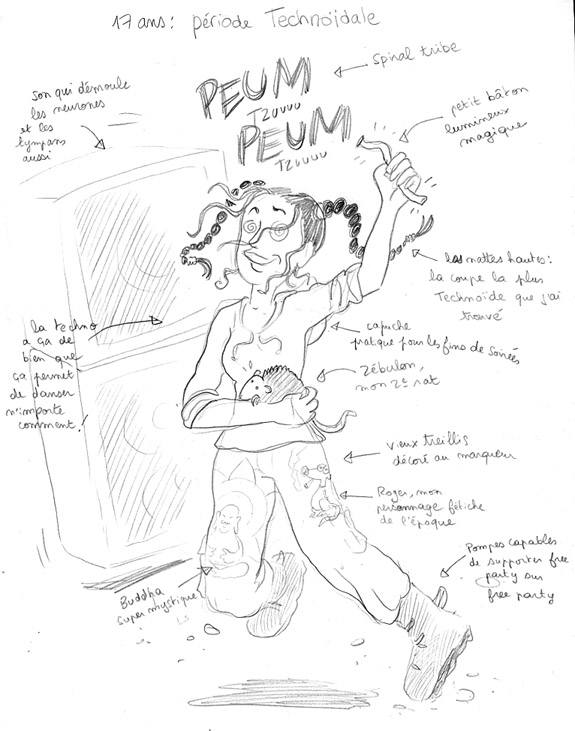 17 ans : période Technoïdale
PEUM
TZUUUU
PEUM
TZUUUU
Spiral tribe
Son qui démoule
les neurones
et les
tympans
aussi
petit bâton
lumineux
magique
les nattes hautes :
la coupe la plus
Technoïde que j'ai
trouvé
la techno
a ça de
bien que
ça permet
de danser
n'importe
comment !
capuche
pratique pour les fins de soirées
Zébulon,
mon 2e rat
vieux treillis
décoré au marqueur
Roger, mon
personnage fétiche
de l'époque
Pompes capables
de supporter free
party sur
free party
Buddha
super mystique